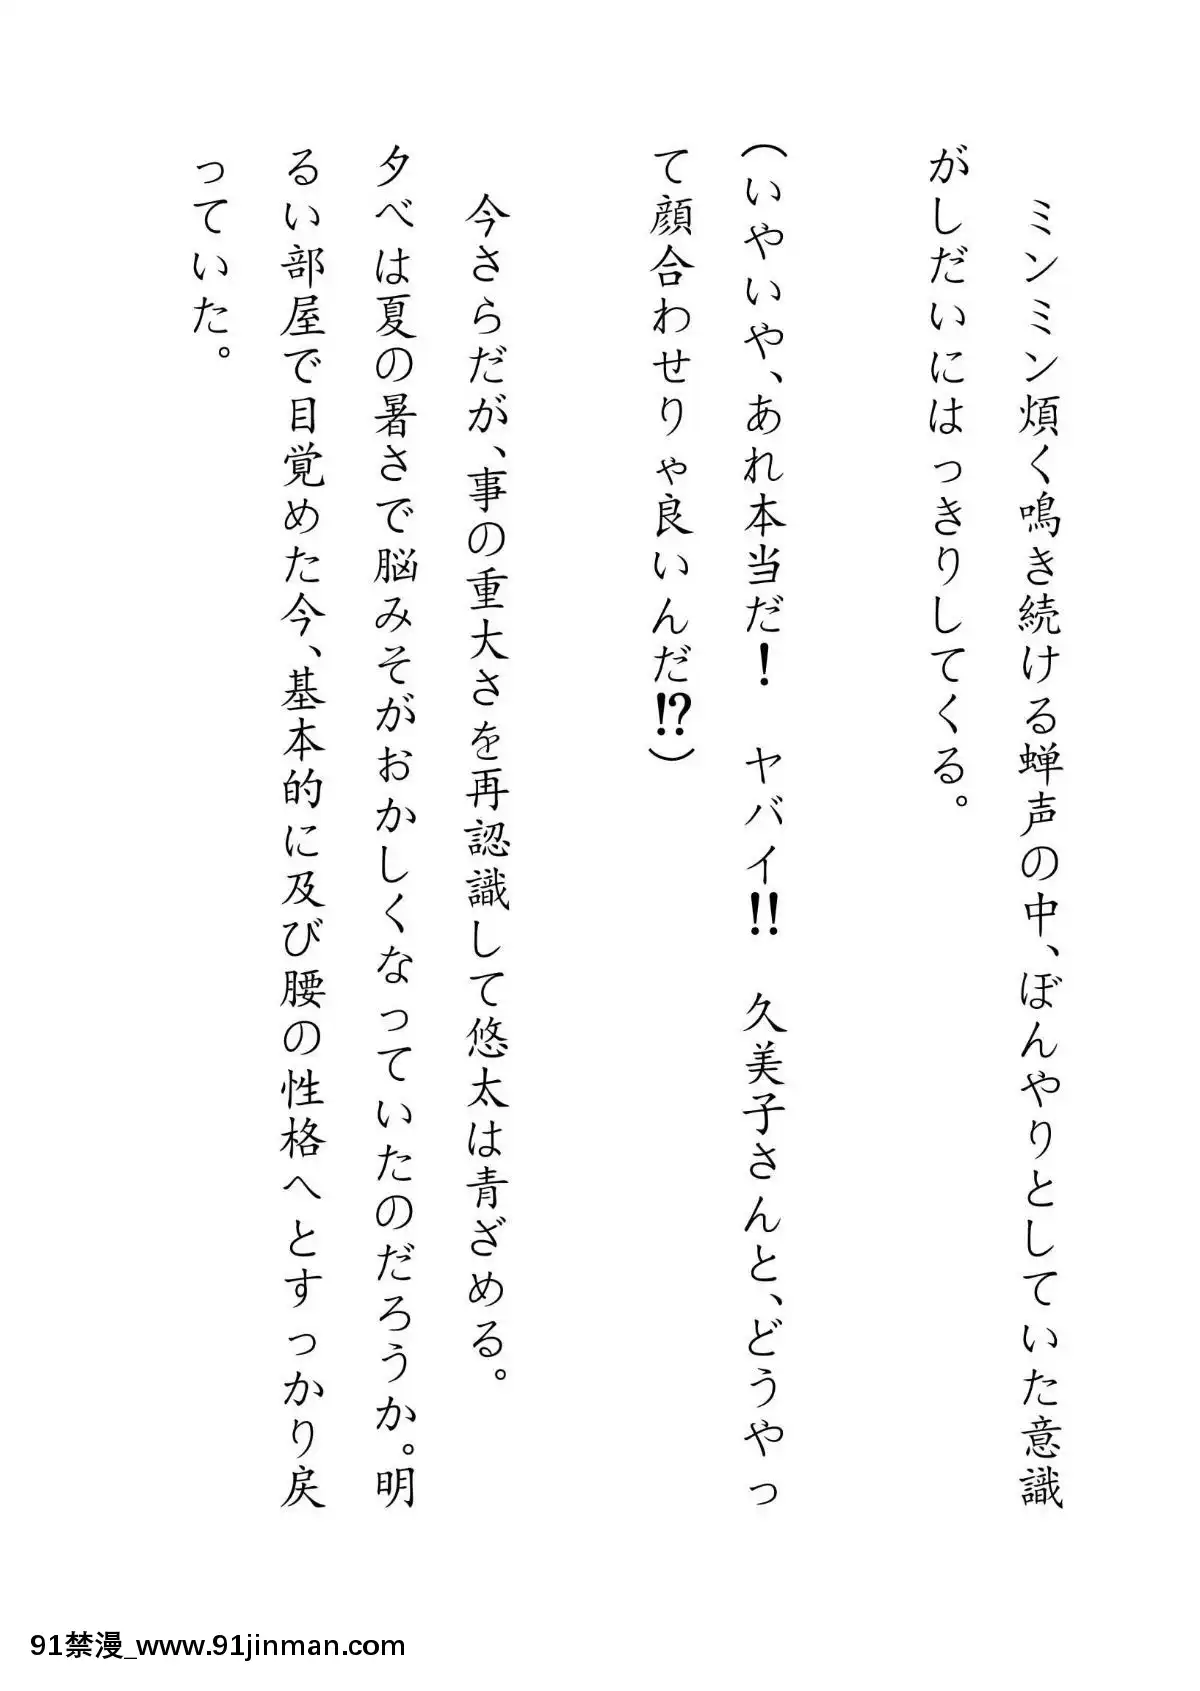 ミンミン煩く鳴き続ける蝉声の中、ぼんやりとしていた意識
がしだいにはっきりしてくる。
(いやいや、あれ本当だ！　ヤバイ!!　久美子さんと、どうやっ
て顔合わせりゃ良いんだ!?)
今さらだが、事の重大さを再認識して悠太は青ざめる。
夕べは夏の暑さで脳みそがおかしくなっていたのだろうか。明
るい部屋で目覚めた今、基本的に及び腰の性格へとすっかり戻
っていた。
91禁漫_www.91jinman.com